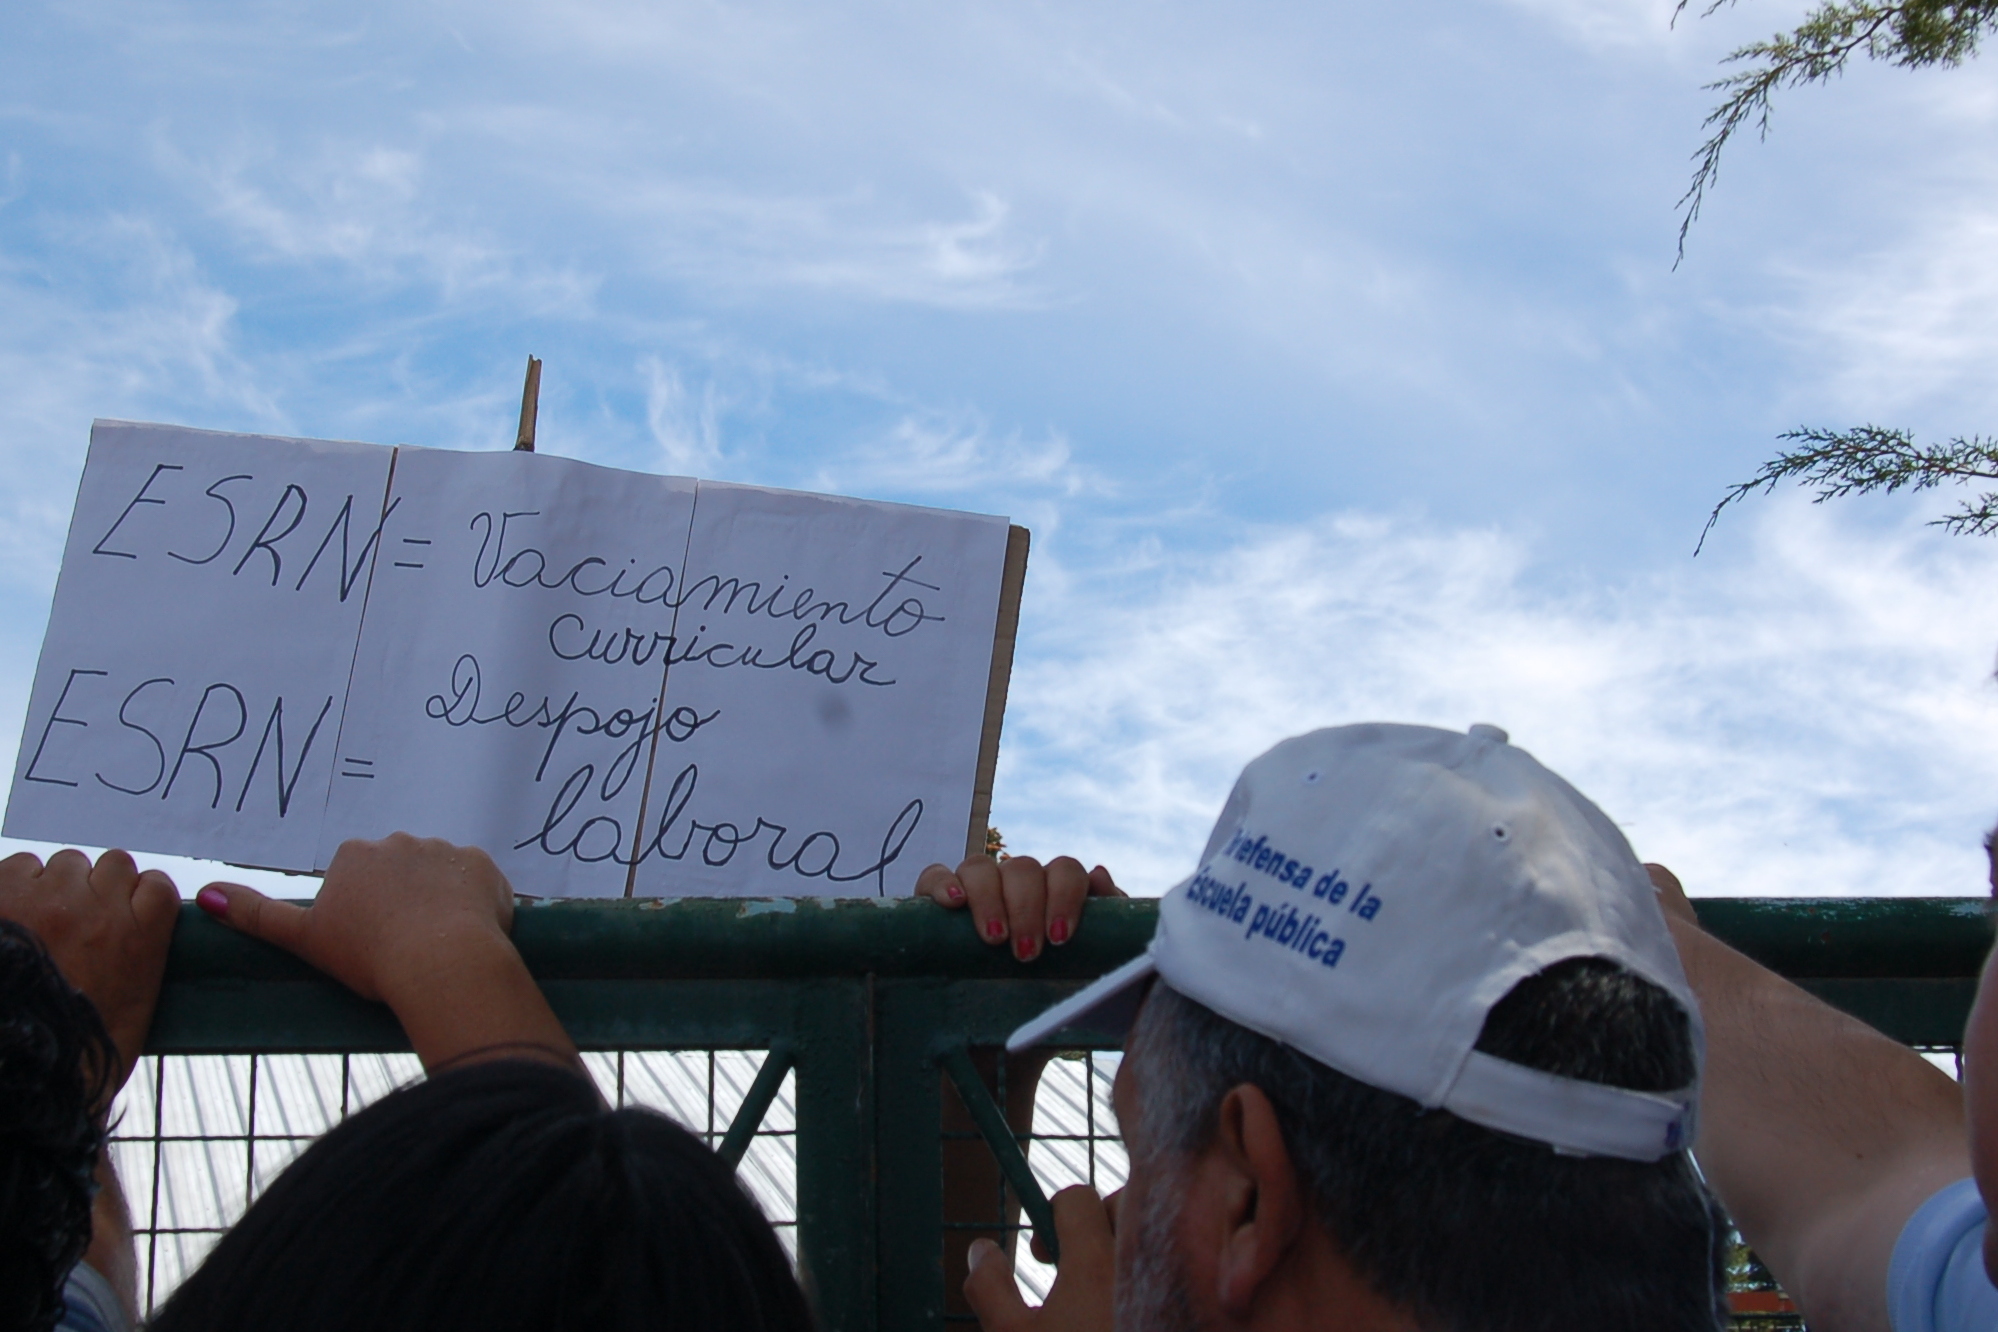 ESRN = Vaciamiento
curricular
ESRN = Despojo
laboral
defensa de la
escuela pública